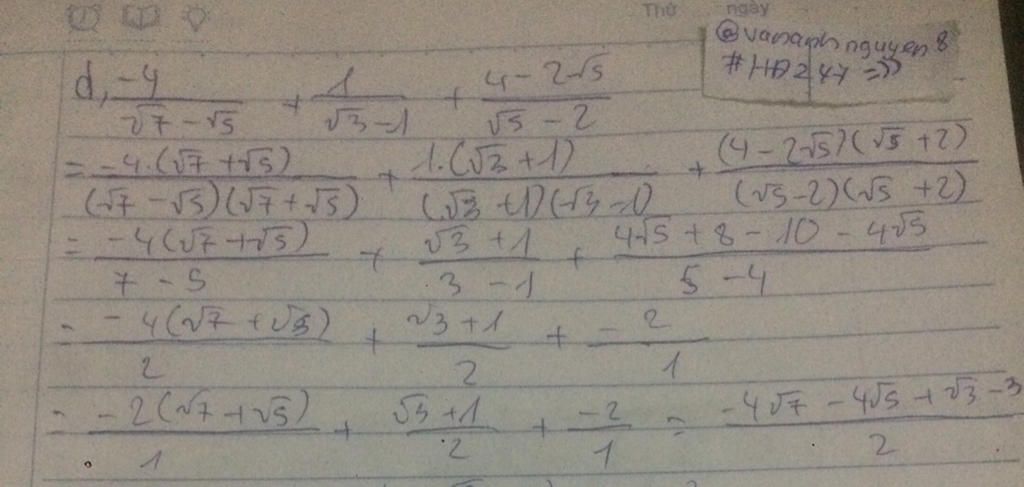 Thứ ngày
@vanaphnguyen8
#HD247 =))
d, -4/(√7 - √5) + 1/(√3 - 1) + (4 - 2√5)/(√5 - 2)
= -4.(√7 + √5)/(√7 - √5)(√7 + √5) + 1.(√3 + 1)/(√3 + 1)(√3 - 1) + (4 - 2√5)(√5 + 2)/(√5 - 2)(√5 + 2)
= -4(√7 + √5)/(7 - 5) + (√3 + 1)/(3 - 1) + (4√5 + 8 - 10 - 4√5)/(5 - 4)
= -4(√7 + √5)/2 + (√3 + 1)/2 + -2/1
= -2(√7 + √5)/1 + (√3 + 1)/2 + -2/1 = (-4√7 - 4√5 + √3 - 3)/2